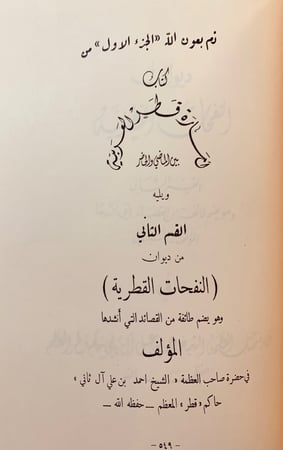 تم بعون الله «الجزء الاول» من
كتاب
إمارة قطر العربية
بين الماضي والحاضر
ويليه
القسم الثاني
من ديوان
( النفحات القطرية )
وهو يضم طائفة من القصائد التي أنشدها
المؤلف
في حضرة صاحب العظمة «الشيخ احمد بن علي آل ثاني»
حاكم «قطر» المعظم ــ حفظه الله ــ
- ٥٤٩ -